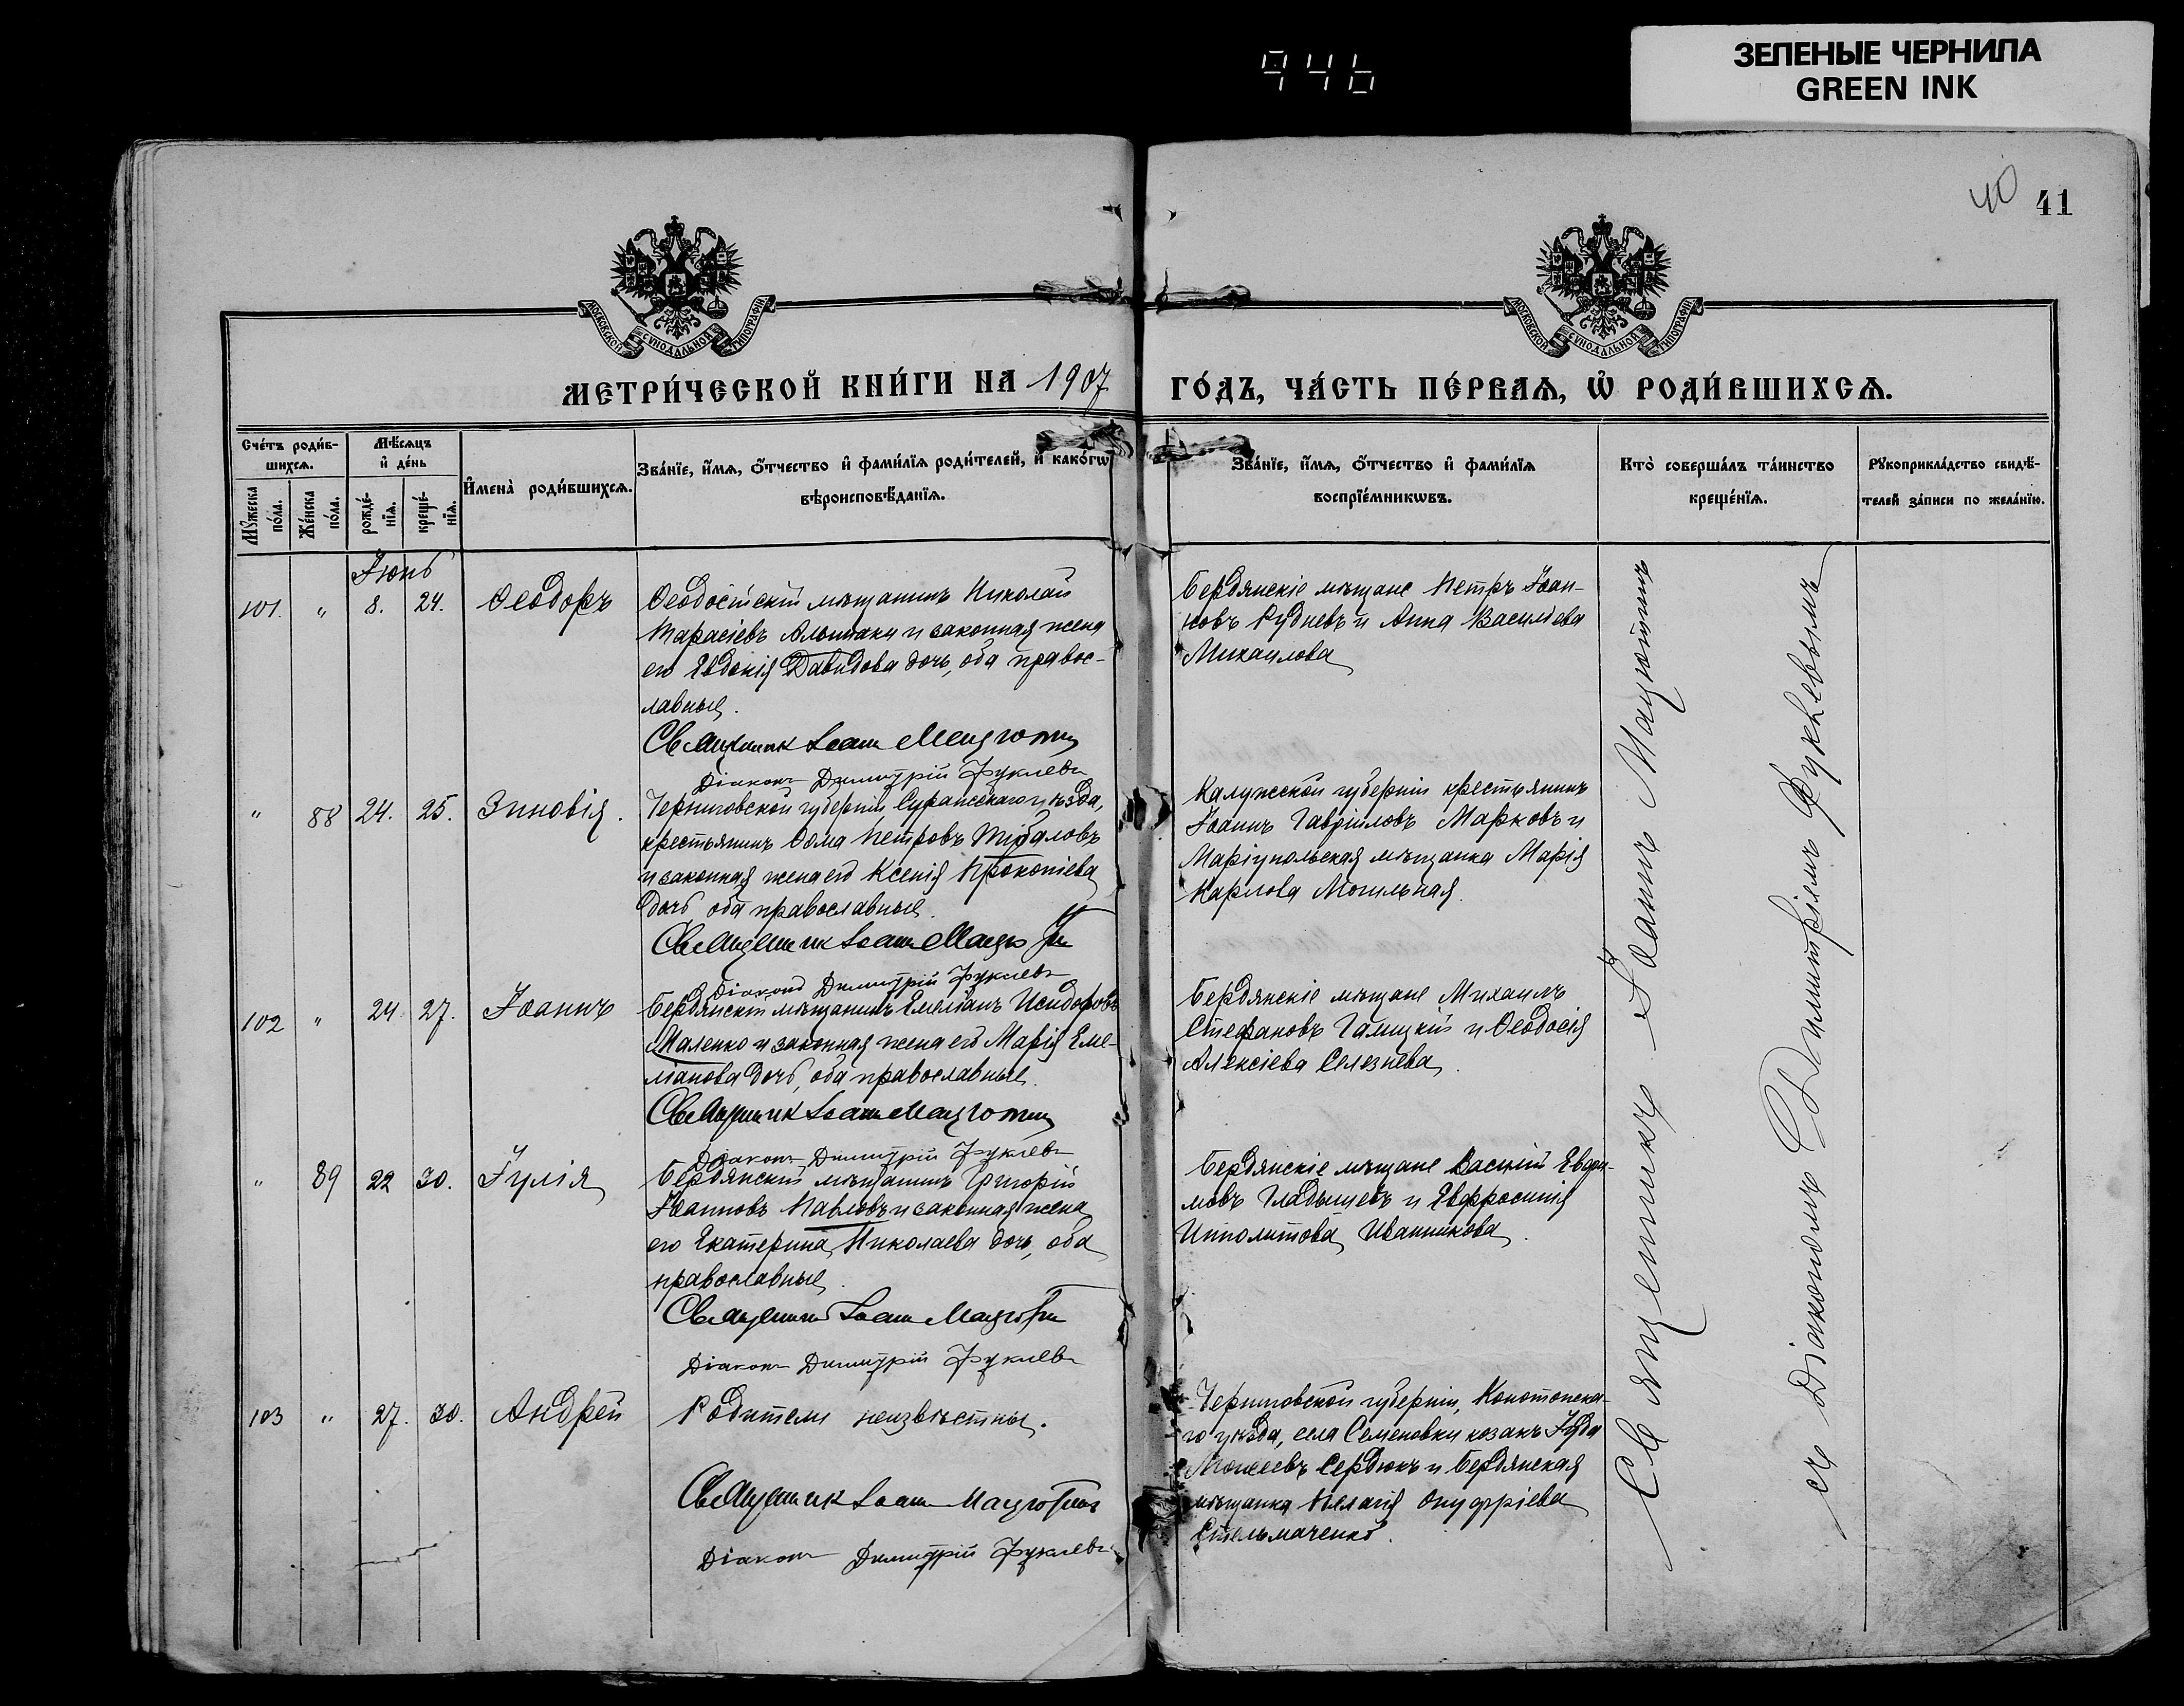 946
ЗЕЛЕНЫЕ ЧЕРНИЛА
GREEN INK
40
41
МОСКОВСКОЙ СѴНОДАЛЬНОЙ ТИПОГРАФІИ
МОСКОВСКОЙ СѴНОДАЛЬНОЙ ТИПОГРАФІИ
МЕТРИ́ЧЕСКОЙ КНИ́ГИ НА 1907
ГО́ДЪ, ЧА́СТЬ ПЕ́РВАѦ, Ѡ҆ РОДИ́ВШИХСѦ.
Сче́тъ роди́в-
шихсѧ.
Мꙋ́жеска по́ла.
Же́нска по́ла.
Мѣ́сѧцъ
и҆ де́нь
рожде́-
нїѧ.
креще́-
нїѧ.
И҆мена̀ роди́вшихсѧ.
Зва́нїе, и҆́мѧ, ѻ҆́тчество и҆ фами́лїѧ роди́телей, и҆ како́гѡ
вѣроисповѣ́данїѧ.
Зва́нїе, и҆́мѧ, ѻ҆́тчество и҆ фами́лїѧ
воспрїе́мникѡвъ.
Кто̀ соверша́лъ та́инство
креще́нїѧ.
Рꙋкоприкла́дство свидѣ́-
телей за́писи по жела́нїю.
Іюнь
101. " 8. 24. Ѳеодоръ
Ѳеодосійскій мѣщанинъ Николай
Тарасіевъ и законная жена
его Евдокія Давидова дочь, оба правос-
лавные.
Священник Іоанн Мацютин
Діаконъ Димитрій Фуклевъ
Бердянскіе мѣщане Петръ Іоан-
новъ Рудневъ и Анна Васильева
Михаилова
" 88 24. 25. Зиновія.
Черниговской губерніи Суражскаго уѣзда,
крестьянинъ Ѳома Петровъ
и законная жена его Ксенія Прокопіева
дочь, оба православные.
Священник Іоанн Мацютин
Діаконъ Димитрій Фуклевъ
Калужской губерніи крестьянинъ
Іоаннъ Гавріиловъ Марковъ и
Маріупольская мѣщанка Марія
Карлова Могильная.
102 " 24 27. Іоаннъ
Бердянскій мѣщанинъ Емеліанъ Исидоровъ
Маленко и законная жена его Марія Еме-
ліанова дочь, оба православные.
Священник Іоанн Мацютин
Діаконъ Димитрій Фуклевъ
Бердянскіе мѣщане Михаилъ
Стефановъ Галицкій и Ѳеодосія
Алексіева Селезнева.
" 89 22 30. Іулія
Бердянскій мѣщанинъ Григорій
Іоанновъ Павловъ и законная жена
его Екатерина Николаева дочь, оба
православные.
Священник Іоанн Мацютин
Діаконъ Димитрій Фуклевъ
Бердянскіе мѣщане Василій Евдоки-
мовъ Гладышевъ и Евфросинія
Ипполитова Иванникова.
103 " 27. 30. Андрей
Родители неизвѣстны.
Священник Іоанн Мацютин
Діаконъ Димитрій Фуклевъ
Черниговской губерніи, Конотопска-
го уѣзда, села Семеновки козакъ Іуда
Моисеевъ Сердюкъ и Бердянская
мѣщанка Пелагія Онуфріева
Стельмаченко.
Священникъ Іоаннъ Мацютинъ
съ Діакономъ Димитріемъ Фуклевымъ